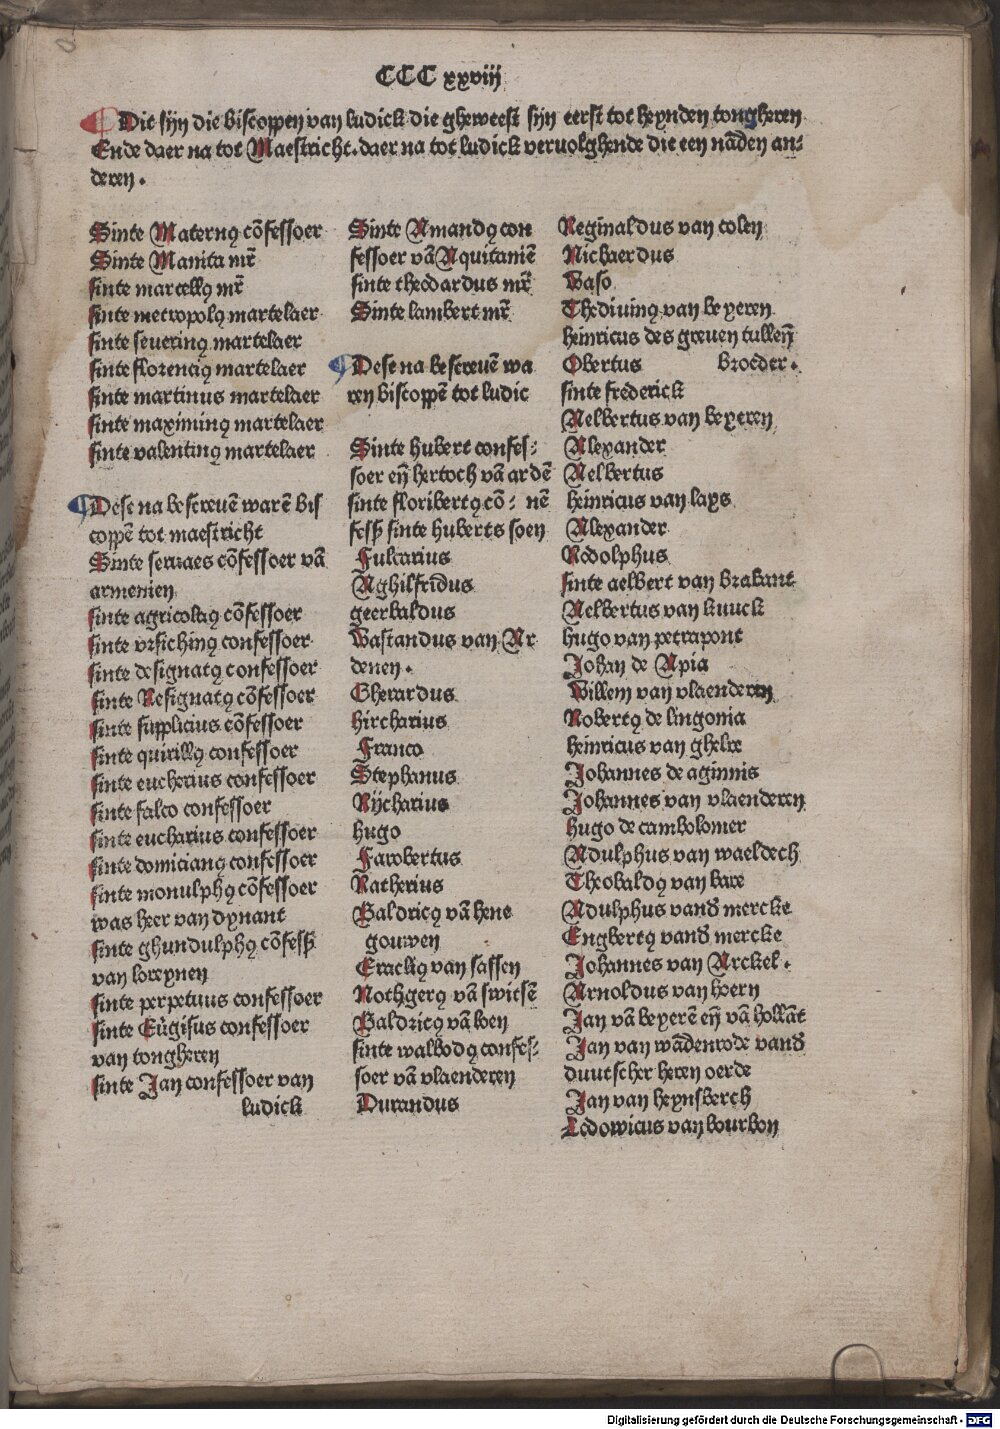 CCC xxviij
Dit sijn die biscoppen van ludick die gheweest sijn eerst tot heynden tongheren
Ende daer na tot Maestricht. daer na tot ludick veruolghende die een nāden an⸗
deren.
Sinte Maternꝰ cōfessoer
Sinte Manita mr̄
sinte marcellꝰ mr̄
sinte metropolꝰ martelaer
sinte seuerinꝰ martelaer
sinte florenciꝰ martelaer
sinte martinus martelaer
sinte maximinꝰ martelaer
sinte valentinꝰ martelaer
Dese na bescreuē warē bis
coppē tot maestricht
Sinte seruaes cōfessoer vā
armenien
sinte agricolaꝰ cōfessoer
sinte vrsichinꝰ confessoer
sinte designatꝰ confessoer
sinte Resignatꝰ cōfessoer
sinte supplicius cōfessoer
sinte quirillꝰ confessoer
sinte eucherius confessoer
sinte falco confessoer
sinte eucharius confessoer
sinte domicianꝰ confessoer
sinte monulphꝰ cōfessoer
was heer van dynant
sinte ghundulphꝰ cōfess̄
van loreynen
sinte perpetuus confessoer
sinte Eūgisus confessoer
van tongheren
sinte Jan confessoer van
ludick
Sinte Amandꝰ con
fessoer vā Aquitaniē
sinte theodardus mr̄
Sinte lambert mr̄
Dese na bescreuē wa
ren biscoppē tot ludic
Sinte hubert confes⸗
soer eñ hertoch vā ardē
sinte floribertꝰ cō⸗ nē
fess̄ sinte huberts soen
Fulcarius
Aghilfridus
geerbaldus
Wastandus van Ar
denen.
Gherardus
hircharius
Franco
Stephanus
Rijcharius
hugo
Farobertus
Ratherius
Baldricꝰ vā hene
gouwen
Eraclꝰ van sassen
Nothgerꝰ vā switsē
Baldricꝰ vā loen
sinte walbodꝰ confes⸗
soer vā vlaenderen
Durandus
Reginaldus van colen
Nichaerdus
Waso
Thediuinꝰ van beyeren
heinricus des greuen tulleñ
Obertus broeder.
sinte frederick
Aelbertus van beyeren
Alexander
Aelbertus
heinricus van lays
Alexander
Rodolphus
sinte aelbert van brabant
Aelbertus van kuuck
hugo van petrapont
Johan de Apia
Willem van vlaenderen
Robertꝰ de lingonia
heinricus van ghelre
Johannes de aginnis
Johannes van vlaenderen
hugo de cambolomer
Adulphus van waeldech
Theobaldꝰ van bare
Adulphus vand̄ mercke
Engbertꝰ vand̄ mercke
Johannes van Arckel.
Arnoldus van hoern
Jan vā beyerē eñ vā hollāt
Jan van wādenrode vand̄
duutscher heren oerde
Jan van heynsberch
Lodowicus van bourbon
Digitalisierung gefördert durch die Deutsche Forschungsgemeinschaft - DFG